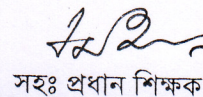 সহঃ প্রধান শিক্ষক